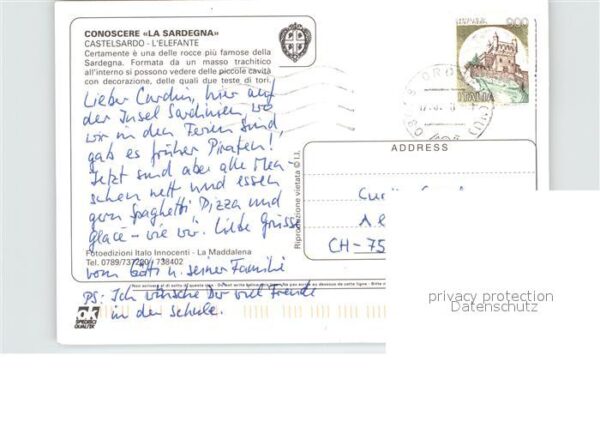 CONOSCERE «LA SARDEGNA»
CASTELSARDO - L'ELEFANTE
Certamente è una delle rocce più famose della
Sardegna. Formata da un masso trachitico
all'interno si possono vedere delle piccole cavità
con decorazione, delle quali due teste di tori.
Lieber Curdin, hier auf
der Insel Sardinien, wo
wir in den Ferien sind,
gab es früher Piraten!
Jetzt sind aber alle Men-
schen nett und essen
gern Spaghetti, Pizza und
Glacé - wie wir. Liebe Grüsse
Fotoedizioni Italo Innocenti - La Maddalena
Tel. 0789/737200 / 738402
vom Götti u. seiner Familie
PS: Ich wünsche Dir viel Freude
in der Schule.
ok
SPECIAL
QUALITÄT
Riproduzione vietata © I.I.
900
ITALIA
ADDRESS
CH-75
privacy protection
Datenschutz